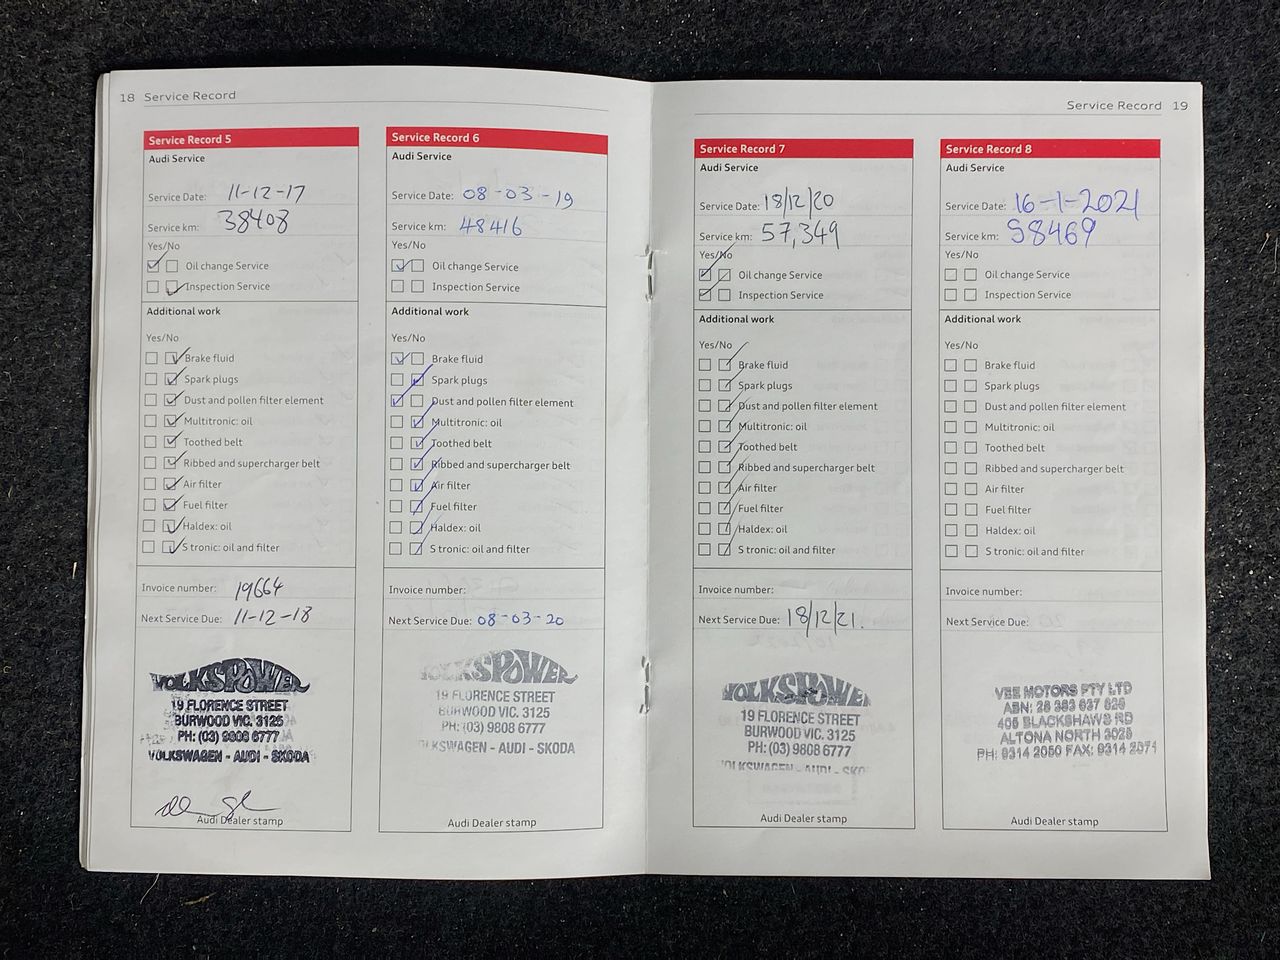 18 Service Record
Service Record 5
Audi Service
Service Date: 11-12-17
Service km: 38408
Yes/No
Oil change Service
Inspection Service
Additional work
Yes/No
Brake fluid
Spark plugs
Dust and pollen filter element
Multitronic: oil
Toothed belt
Ribbed and supercharger belt
Air filter
Fuel filter
Haldex: oil
S tronic: oil and filter
Invoice number: 19664
Next Service Due: 11-12-18
VOLKSPOWER
19 FLORENCE STREET
BURWOOD VIC. 3125
PH: (03) 9808 6777
VOLKSWAGEN - AUDI - SKODA
Audi Dealer stamp
Service Record 6
Audi Service
Service Date: 08-03-19
Service km: 48416
Yes/No
Oil change Service
Inspection Service
Additional work
Yes/No
Brake fluid
Spark plugs
Dust and pollen filter element
Multitronic: oil
Toothed belt
Ribbed and supercharger belt
Air filter
Fuel filter
Haldex: oil
S tronic: oil and filter
Invoice number:
Next Service Due: 08-03-20
VOLKSPOWER
19 FLORENCE STREET
BURWOOD VIC. 3125
PH: (03) 9808 6777
VOLKSWAGEN - AUDI - SKODA
Audi Dealer stamp
Service Record 19
Service Record 7
Audi Service
Service Date: 18/12/20
Service km: 57,349
Yes/No
Oil change Service
Inspection Service
Additional work
Yes/No
Brake fluid
Spark plugs
Dust and pollen filter element
Multitronic: oil
Toothed belt
Ribbed and supercharger belt
Air filter
Fuel filter
Haldex: oil
S tronic: oil and filter
Invoice number:
Next Service Due: 18/12/21.
VOLKSPOWER
19 FLORENCE STREET
BURWOOD VIC. 3125
PH: (03) 9808 6777
VOLKSWAGEN - AUDI - SKO
Audi Dealer stamp
Service Record 8
Audi Service
Service Date: 16-1-2021
Service km: 58469
Yes/No
Oil change Service
Inspection Service
Additional work
Yes/No
Brake fluid
Spark plugs
Dust and pollen filter element
Multitronic: oil
Toothed belt
Ribbed and supercharger belt
Air filter
Fuel filter
Haldex: oil
S tronic: oil and filter
Invoice number:
Next Service Due:
VEE MOTORS PTY LTD
ABN: 28 383 637 626
405 BLACKSHAWS RD
ALTONA NORTH 3025
PH: 9314 2050 FAX: 9314 2071
Audi Dealer stamp